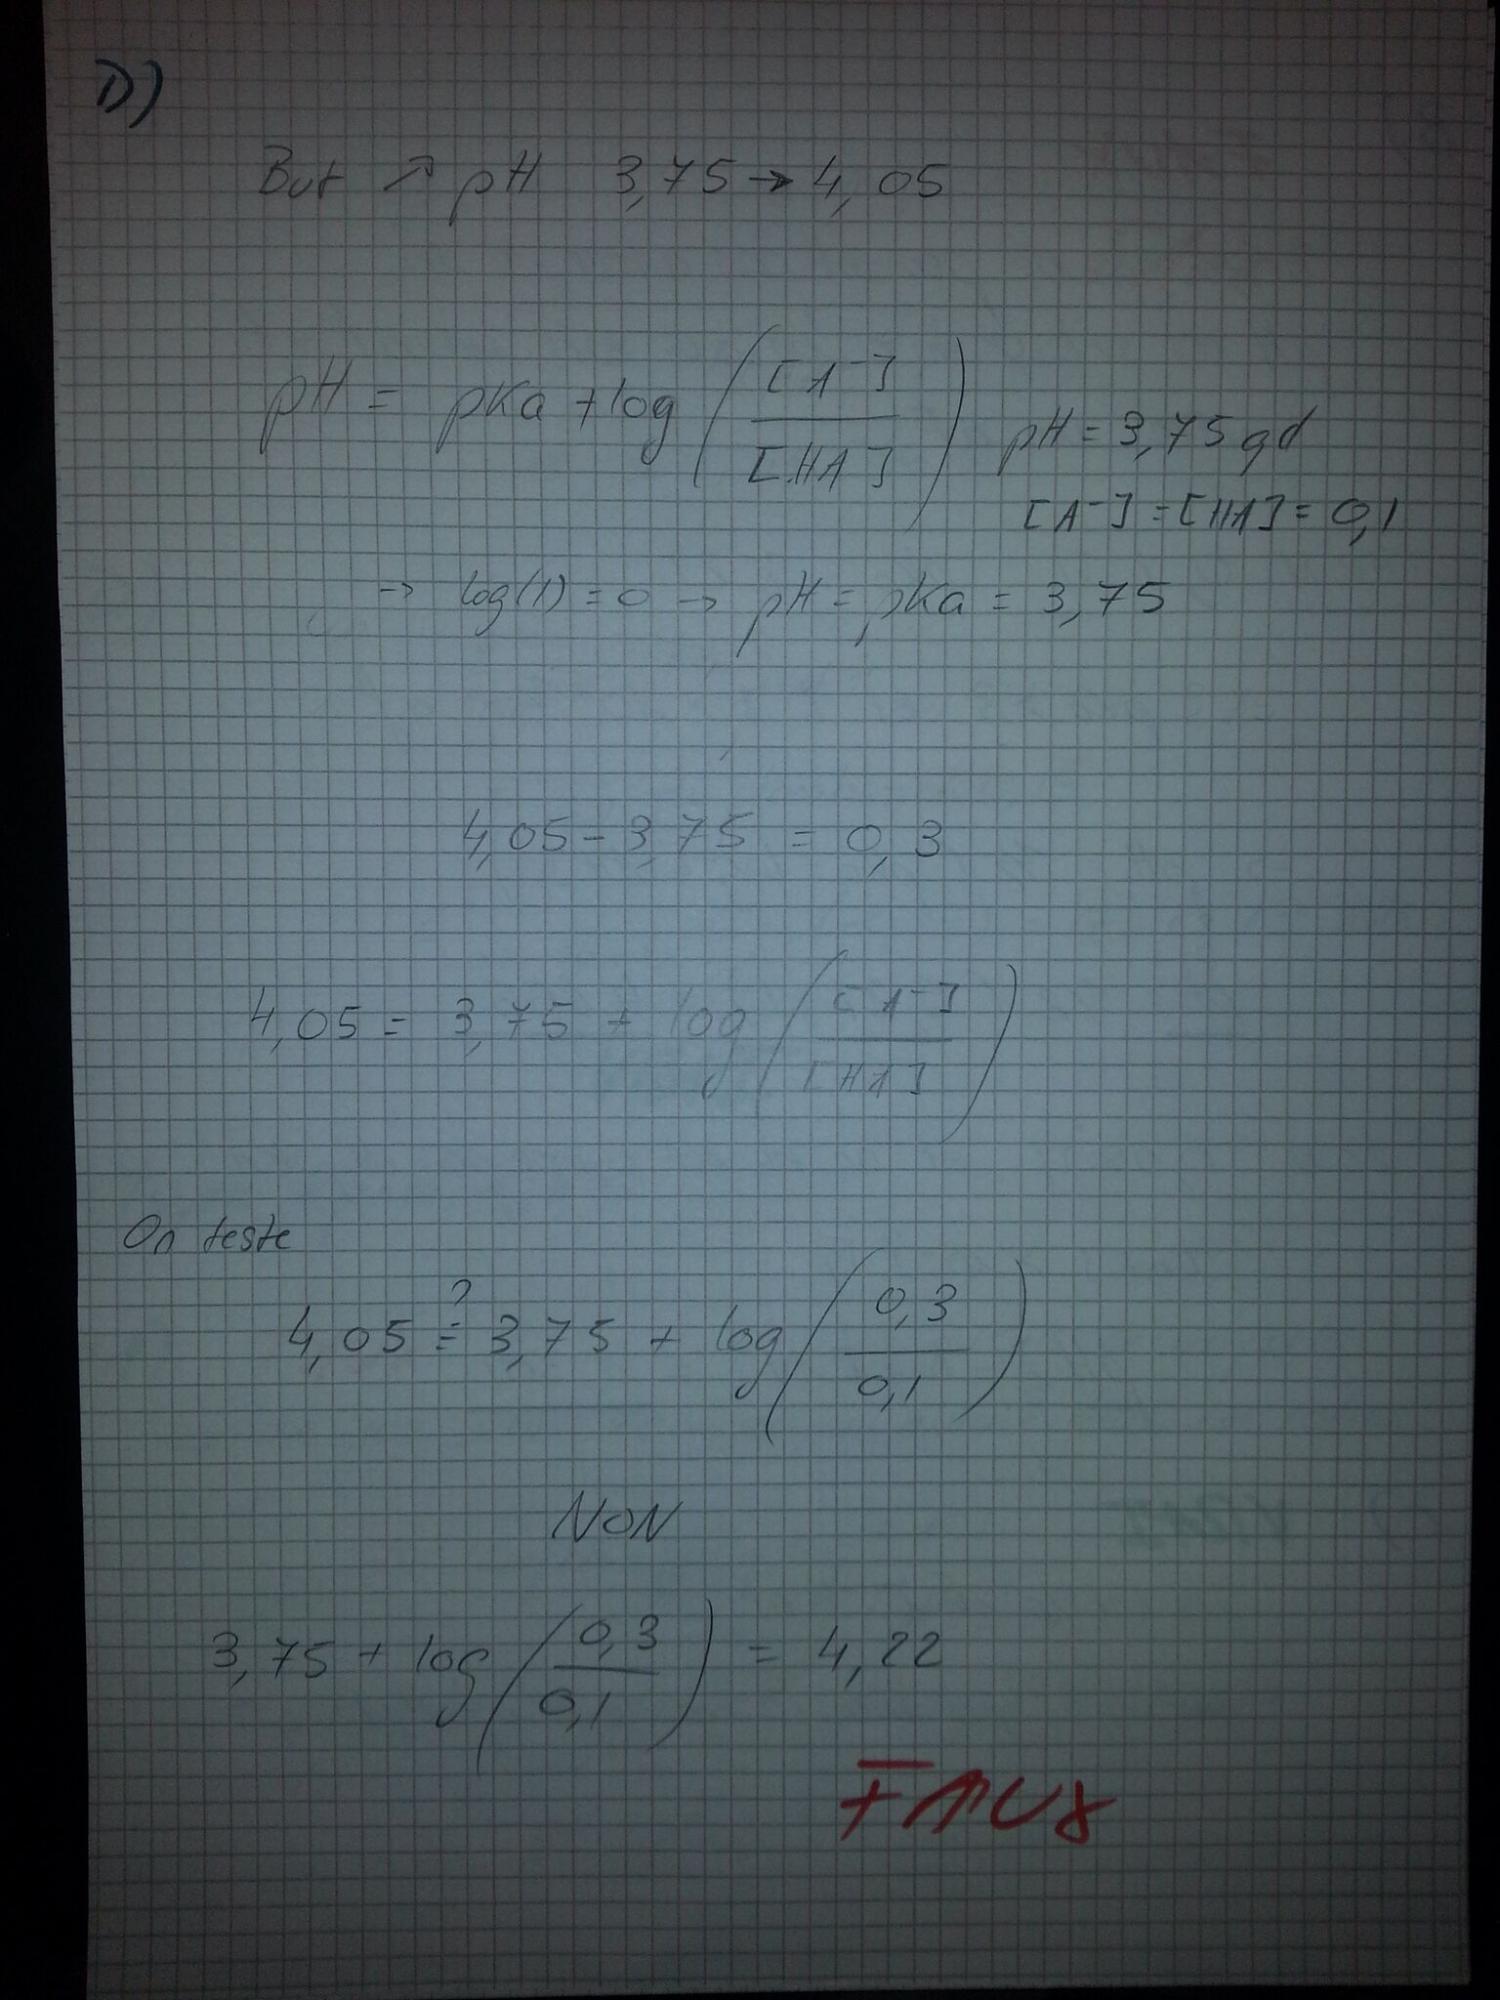 D)
But ↗ pH 3,75 → 4,05
pH = pKa + log ([A⁻] / [HA]) pH = 3,75 qd
[A⁻] = [HA] = 0,1
→ log(1) = 0 → pH = pKa = 3,75
4,05 - 3,75 = 0,3
4,05 = 3,75 + log ([A⁻] / [HA])
On teste
4,05 ≟ 3,75 + log (0,3 / 0,1)
NON
3,75 + log (0,3 / 0,1) = 4,22
FAUX